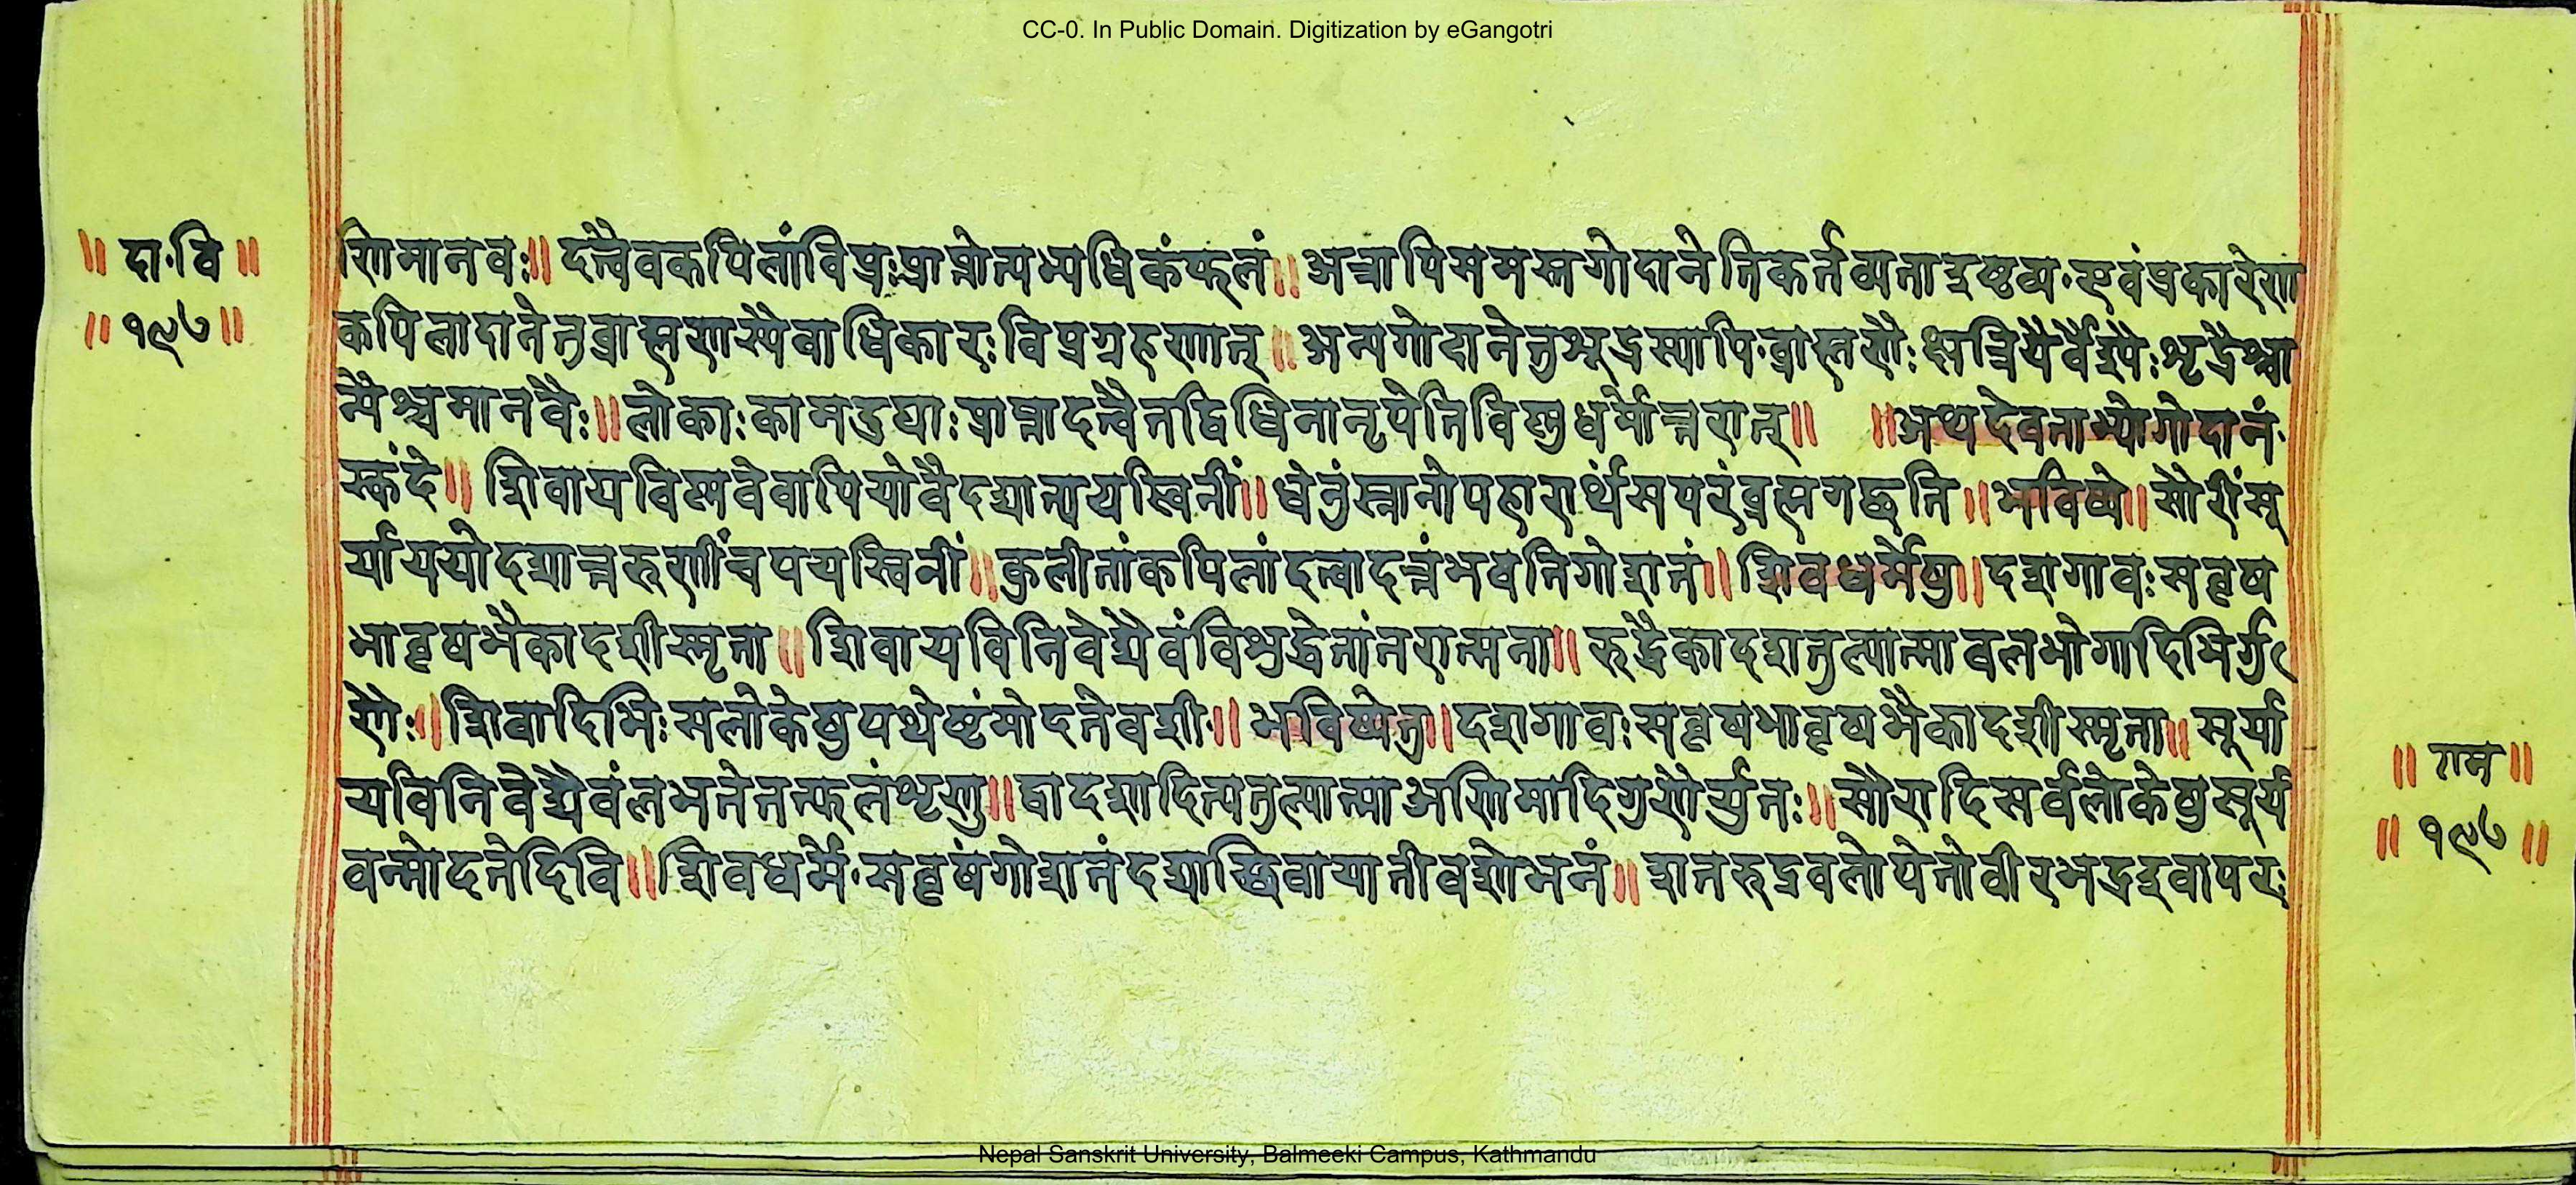 CC-0. In Public Domain. Digitization by eGangotri
॥ दा॰वि ॥
॥ १९७ ॥
णिमानवः॥ दत्त्वैवकपिलांविप्रःप्राप्नोत्यभ्यधिकंफलं॥ अत्रापिसमस्तगोदानेतिकर्तव्यताद्रष्टव्य॰एवंप्रकारेण
कपिलादानेतुब्राह्मणस्यैवाधिकारःविप्रग्रहणात्॥ अन्यगोदानेतुशूद्रस्यापि॰ब्राह्मणैःक्षत्रियैर्वैश्यैःशूद्रैश्चा
न्यैश्चमानवैः॥ लोकाःकामदुघाःप्राप्तादत्वैतद्विधिनानृपेतिविष्णुधर्मोत्तरात्॥ ॥अथदेवताभ्योगोदानं॰
स्कंदे॥ शिवायविष्णवेवापियोवैदद्यात्पयस्विनीं॥ धेनुंस्नानोपहारार्थंसपरंब्रह्मगच्छति॥ भविष्ये॥ सौरींसू
र्याययोदद्यात्तरुणींचपयस्विनीं॥ कुलीनांकपिलांदत्वादत्तंभवतिगोशतं॥ शिवधर्मेषु॥ दशगावःसवृष
भावृषभैकादशीस्मृता॥ शिवायविनिवेद्यैवंविशुद्धेनांतरात्मना॥ रुद्रैकादशतुल्यात्माबलभोगादिभिर्गु
णैः॥ शिवादिभिःसलोकेषुयथेष्टंमोदतेवशी॥ भविष्येतु॥ दशगावःसवृषभावृषभैकादशीस्मृता॥ सूर्या
यविनिवेद्यैवंलभतेतत्फलंशृणु॥ द्वादशादित्यतुल्यात्माअणिमादिगुणैर्युतः॥ सौरादिसर्वलोकेषुसूर्य
वन्मोदतेदिवि॥ शिवधर्मे॰सवृषंगोशतंदद्याच्छिवायातीवशोभनं॥ शतरुद्रबलोपेतोवीरभद्रइवापरः
॥ राम ॥
॥ १९७ ॥
Nepal Sanskrit University, Balmeeki Campus, Kathmandu